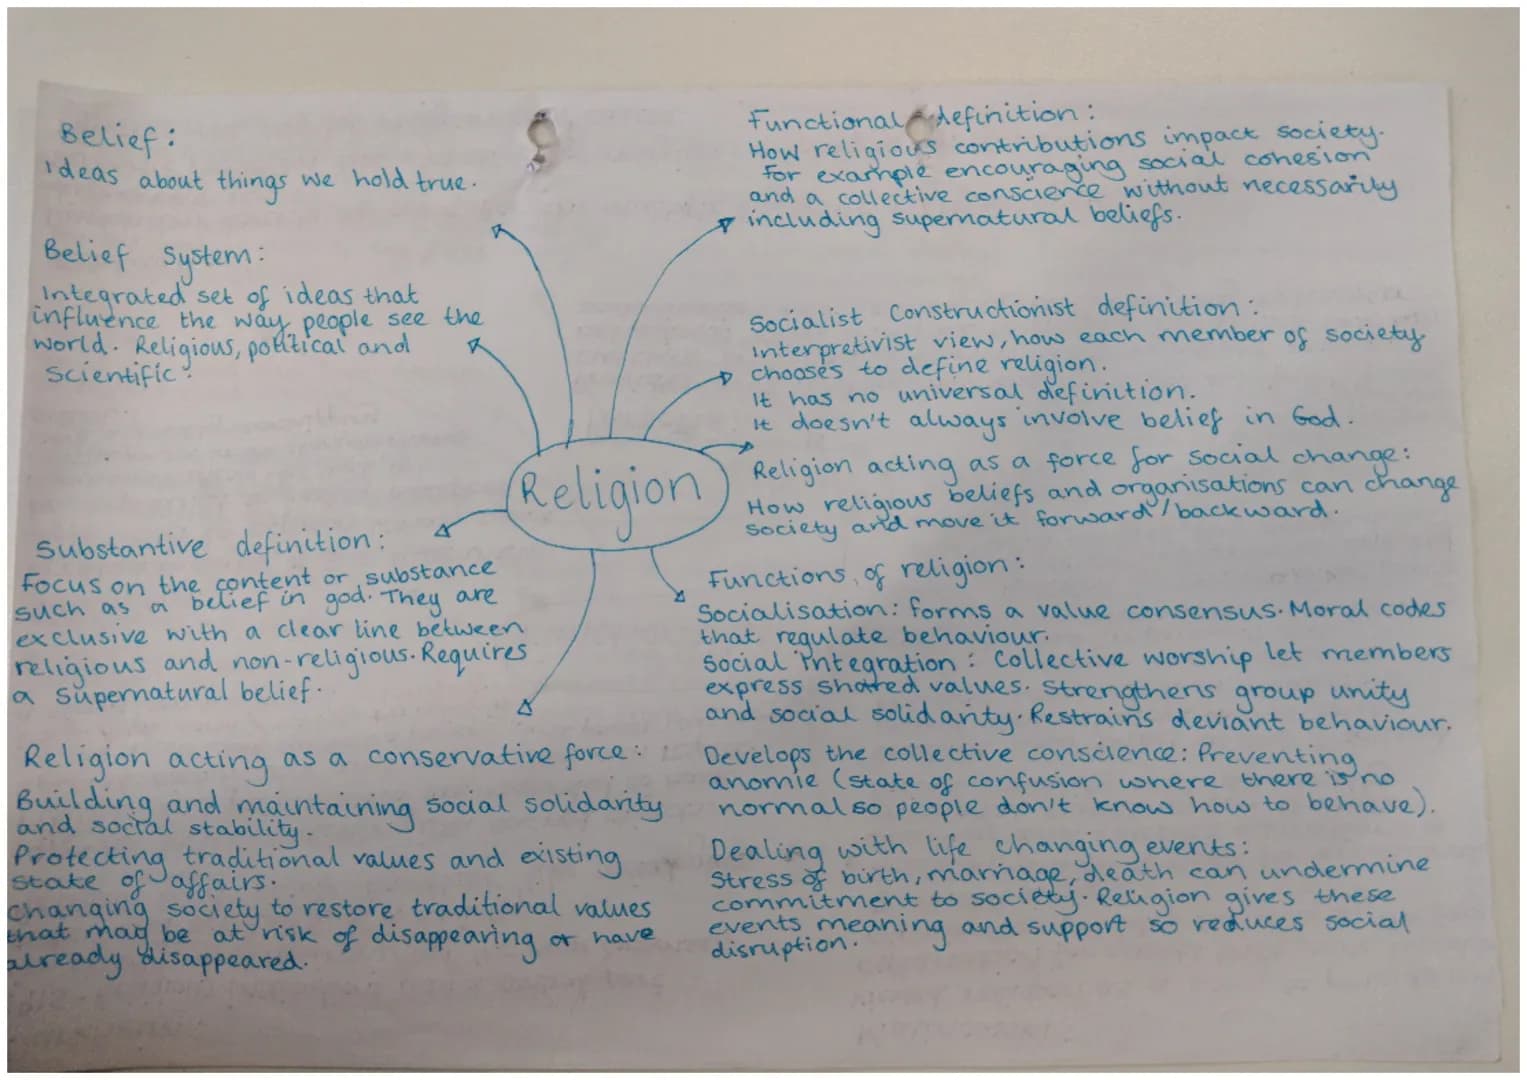 Belief:
ideas about things we hold true.
Belief System:
Integrated set of ideas that
influence the way people see the
world. Religious, political and
Scientific.
Substantive definition:
Focus on the content or substance
such as a belief in god. They are
exclusive with a clear line between
religious and non-religious. Requires
a Supernatural belief.
Religion acting as a conservative force:
Building and maintaining social solidarity
and social stability.
Protecting traditional values and existing
state of affairs.
changing society to restore traditional values
that may be at risk of disappearing or have
already disappeared.
Religion
Functional definition:
How religious contributions impact society.
for example encouraging social cohesion
and a collective conscience without necessarily
including supernatural beliefs.
Socialist Constructionist definition:
Interpretivist view, how each member of society
chooses to define religion.
It has no universal definition.
It doesn't always involve belief in God.
Religion acting as a force for social change:
How religious beliefs and organisations can change
society and move it forward/backward.
Functions of religion:
Socialisation: forms a value consensus. Moral codes
that regulate behaviour.
Social integration: Collective worship let members
express shared values. Strengthens group unity
and social solidarity. Restrains deviant behaviour.
Develops the collective conscience: Preventing
anomie (state of confusion where there is no
normal so people don't know how to behave).
Dealing with life changing events:
Stress of birth, marriage, death can undermine
commitment to society. Religion gives these
events meaning and support so reduces social
disruption.